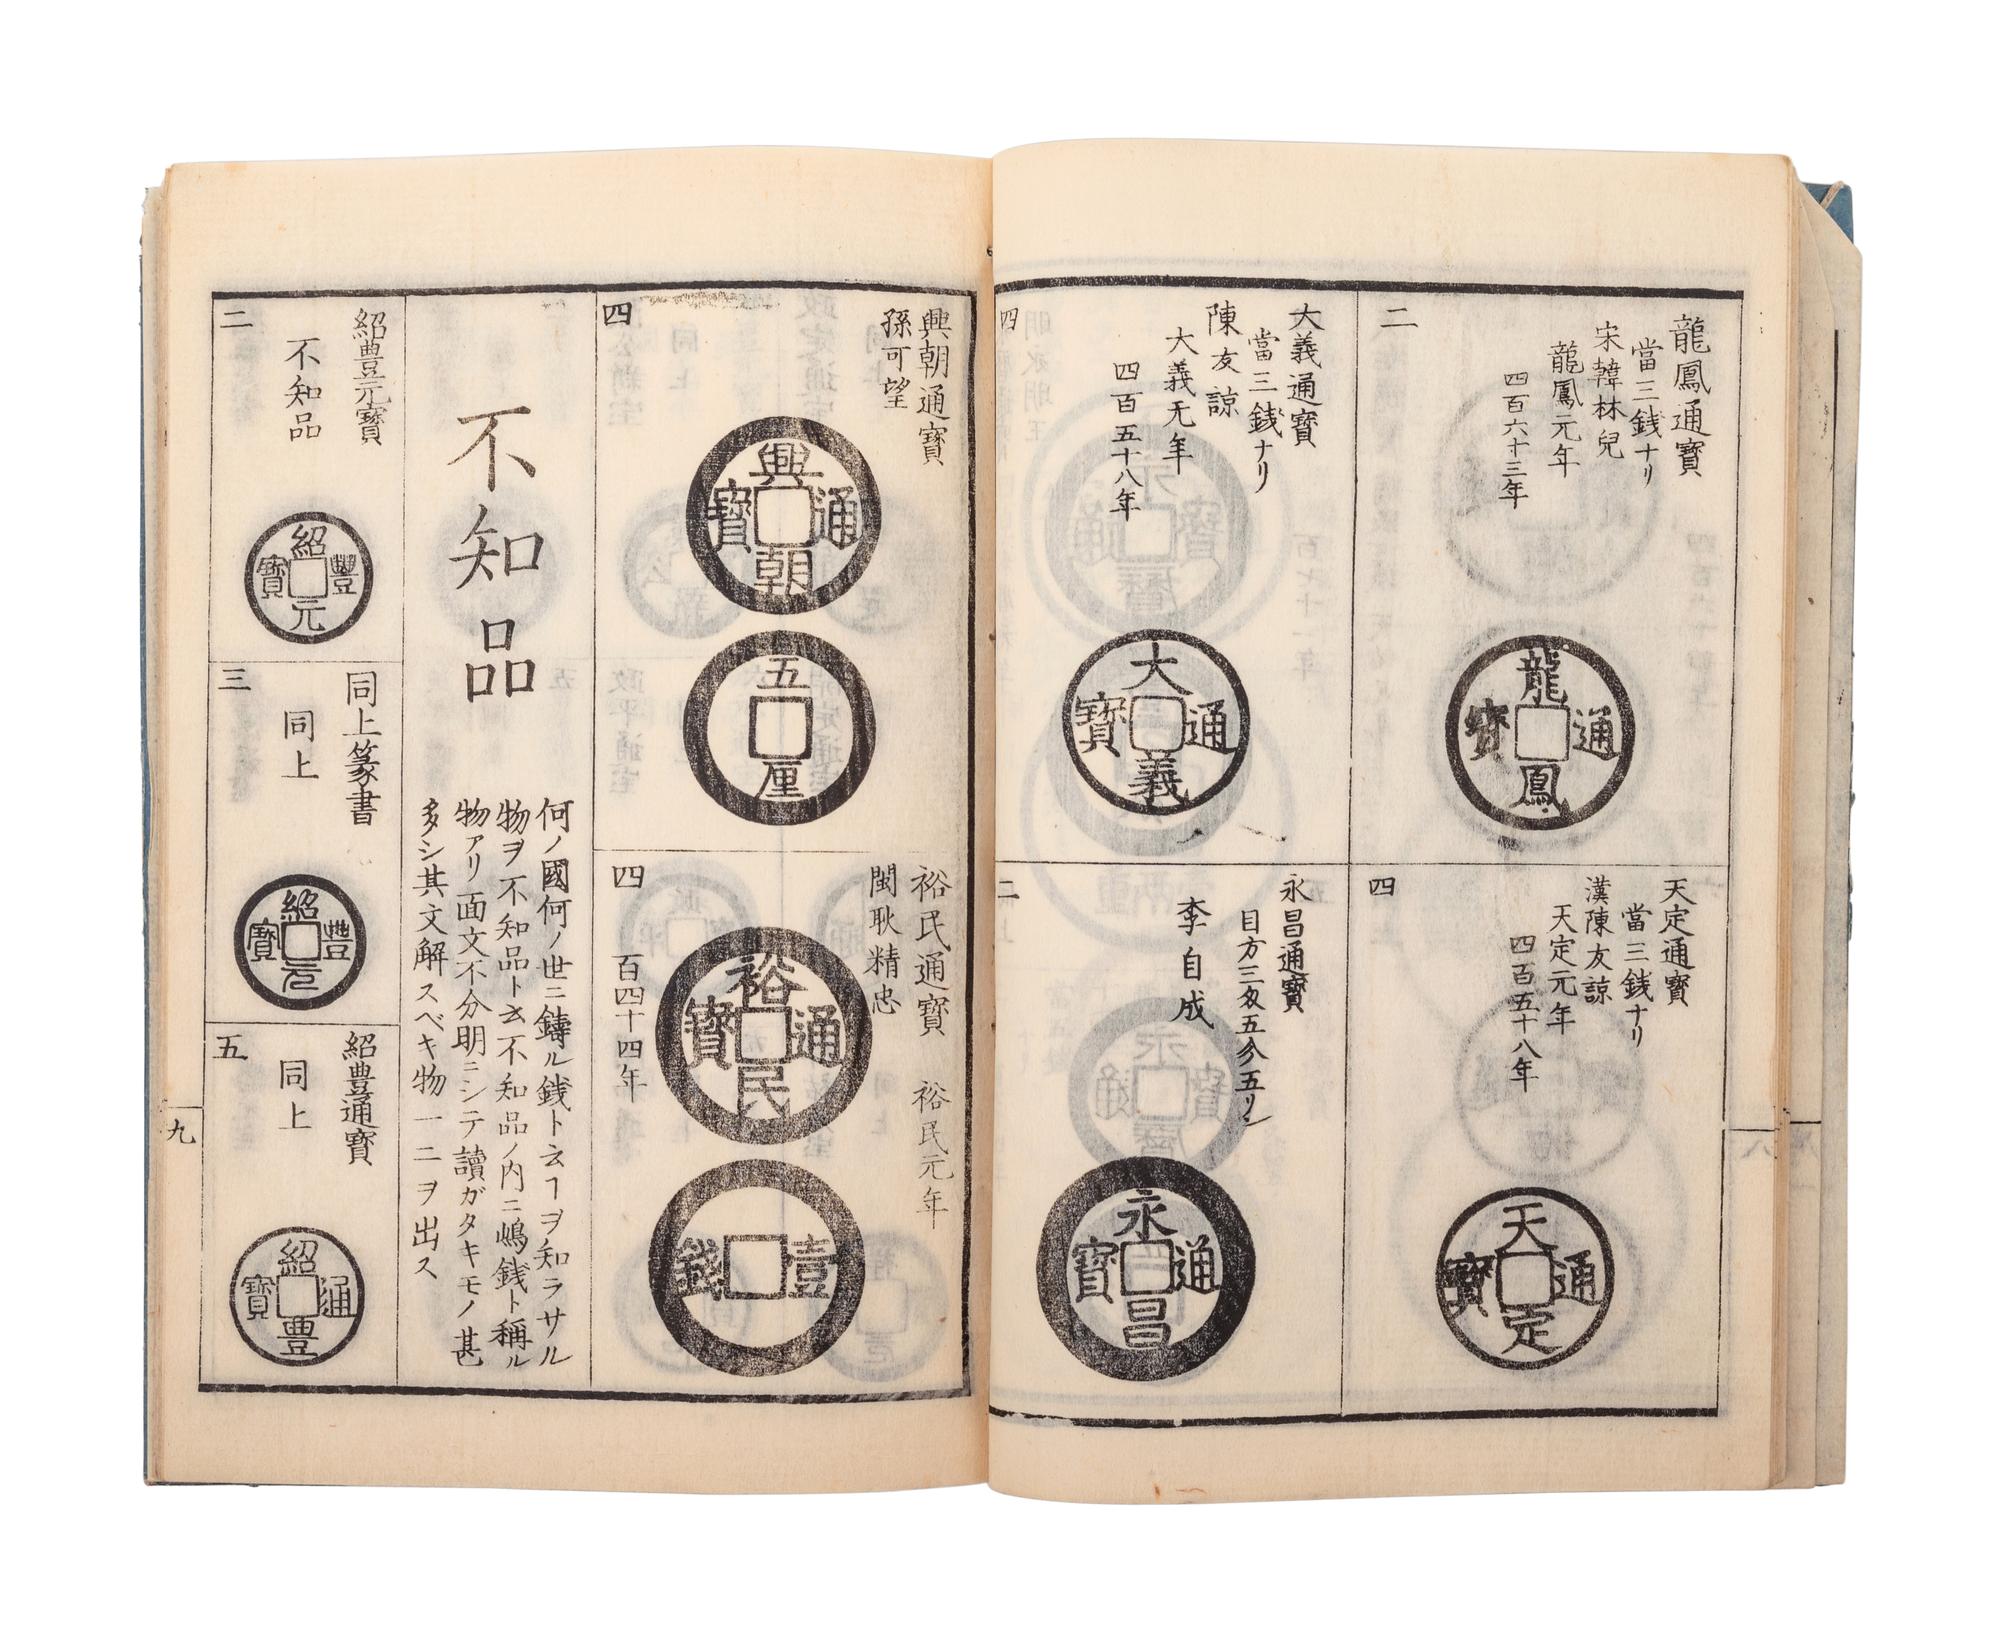 龍鳳通寳
當三銭ナリ
宋韓林兒
龍鳳元年
四百六十三年
二
龍鳳通寳
天定通寳
當三銭ナリ
漢陳友諒
天定元年
四百五十八年
四
天定通寳
大義通寳
當三銭ナリ
陳友諒
大義元年
四百五十八年
四
大義通寳
永昌通寳
目方三匁五分五リン
李自成
二
永昌通寳
八
興朝通寳
孫可望
四
興朝通寳
五厘
裕民通寳 裕民元年
閩耿精忠
百四十四年
四
裕民通寳
壹錢
不知品
何ノ國何ノ世ニ鑄ル銭ト云ヿヲ知ラサル
物ヲ不知品ト云不知品ノ内ニ嶋銭ト稱ル
物アリ面文不分明ニシテ讀ガタキモノ甚
多シ其文解スベキ物一二ヲ出ス
紹豊元寳
不知品
二
紹豐元寳
同上篆書
同上
三
紹豐元寳
紹豊通寳
同上
五
紹豊通寳
九